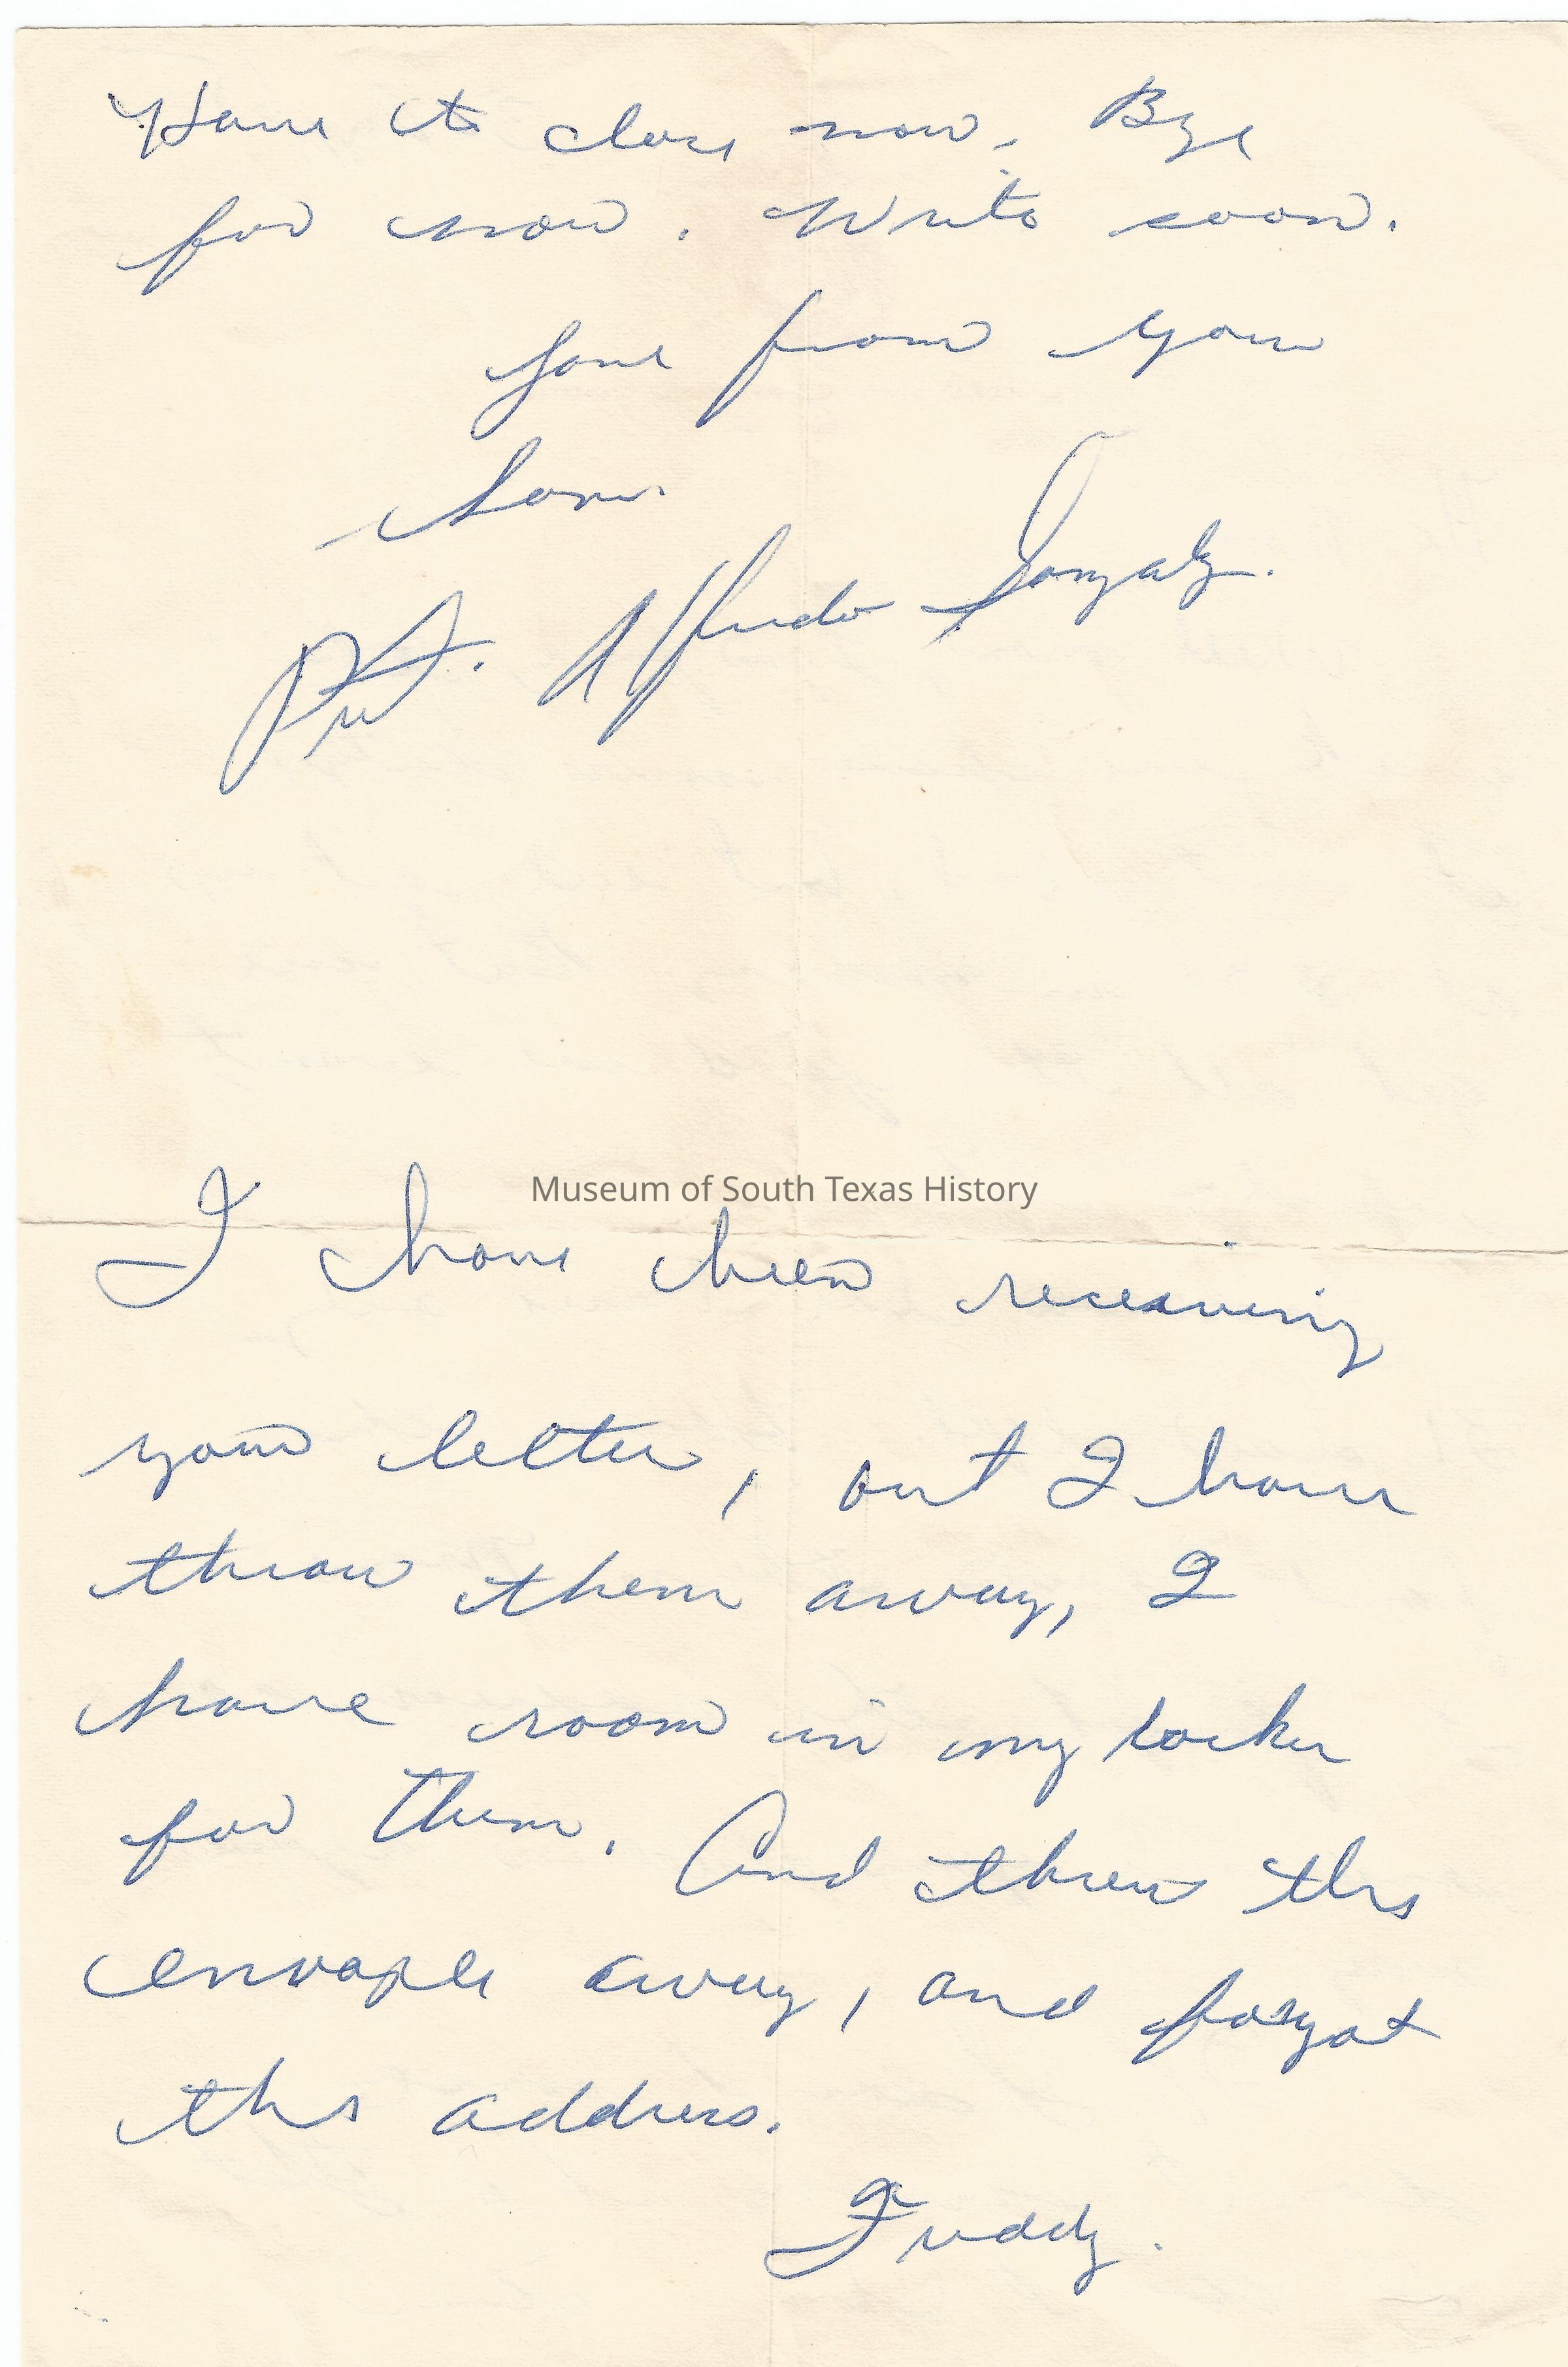 Have to close now. Bye
for now. Write soon.
Love from your
Son.
Pvt. Alfredo Gonzalez.
Museum of South Texas History
I have been receiving
your letter, but I have
throw them away, I
have room in my locker
for them. And threw the
envople away, and forgot
the address.
Freddy.